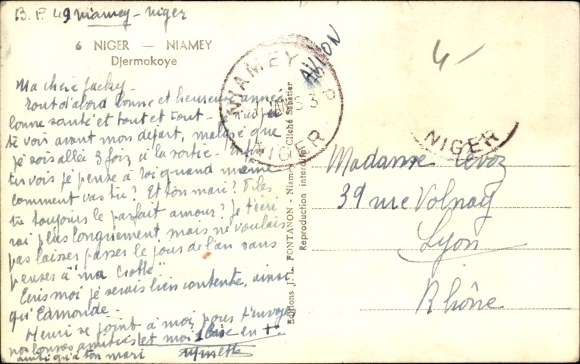 B.P. 49 Niamey - Niger
6 NIGER — NIAMEY
Djermakoye
Ma chère Jacky -
Tout d'abord bonne et heureuse année
bonne santé et tout et tout -
te voir avant mon départ, malgré que
je sois allée 3 fois à la sortie - Enfin
tu vois je pense à toi quand même
comment vas tu ? Et ton mari ?
tu toujours le parfait amour ? Je t'écri
rai plus longuement mais ne voulais
pas laisser passer le jour de l'an sans
penser à "ma Crotte"
Ecris moi je serais bien contente, ainsi
qu'Edmonde -
Henri se joint à moi pour t'envoyer
nos bonnes amitiés et moi
ainsi qu'à ton mari
AVION
NIAMEY
NIGER
4 -
NIGER
Editions J. L. FONTANON - Niamey - Cliché Sabatier
Reproduction interdite
Madame
39 rue Volnay
Lyon
Rhône